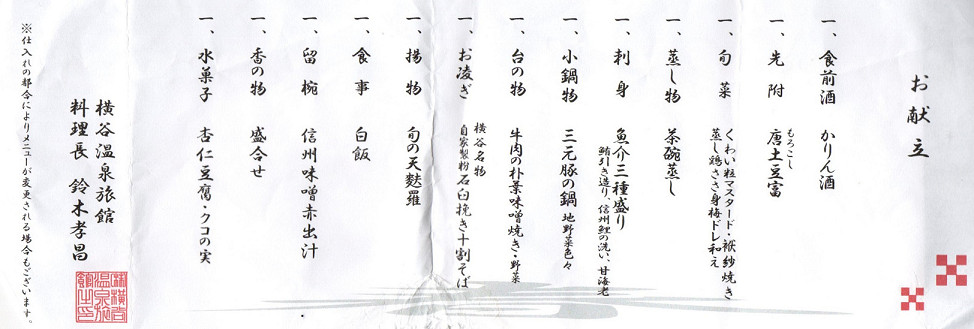 お献立
一、食前酒 かりん酒
一、先附 唐土豆富
もろこし
一、旬菜 くわい粒マスタード・袱紗焼き
蒸し鶏ささ身梅ドレ和え
一、蒸し物 茶碗蒸し
一、刺身 魚介三種盛り
鮪引き造り、信州鯉の洗い、甘海老
一、小鍋物 三元豚の鍋 地野菜色々
一、台の物 牛肉の朴葉味噌焼き・野菜
一、お凌ぎ 横谷名物
自家製粉石臼挽き十割そば
一、揚物 旬の天麩羅
一、食事 白飯
一、留椀 信州味噌赤出汁
一、香の物 盛合せ
一、水菓子 杏仁豆腐・クコの実
横谷温泉旅館
料理長 鈴木孝昌
※仕入れの都合によりメニューが変更される場合もございます。